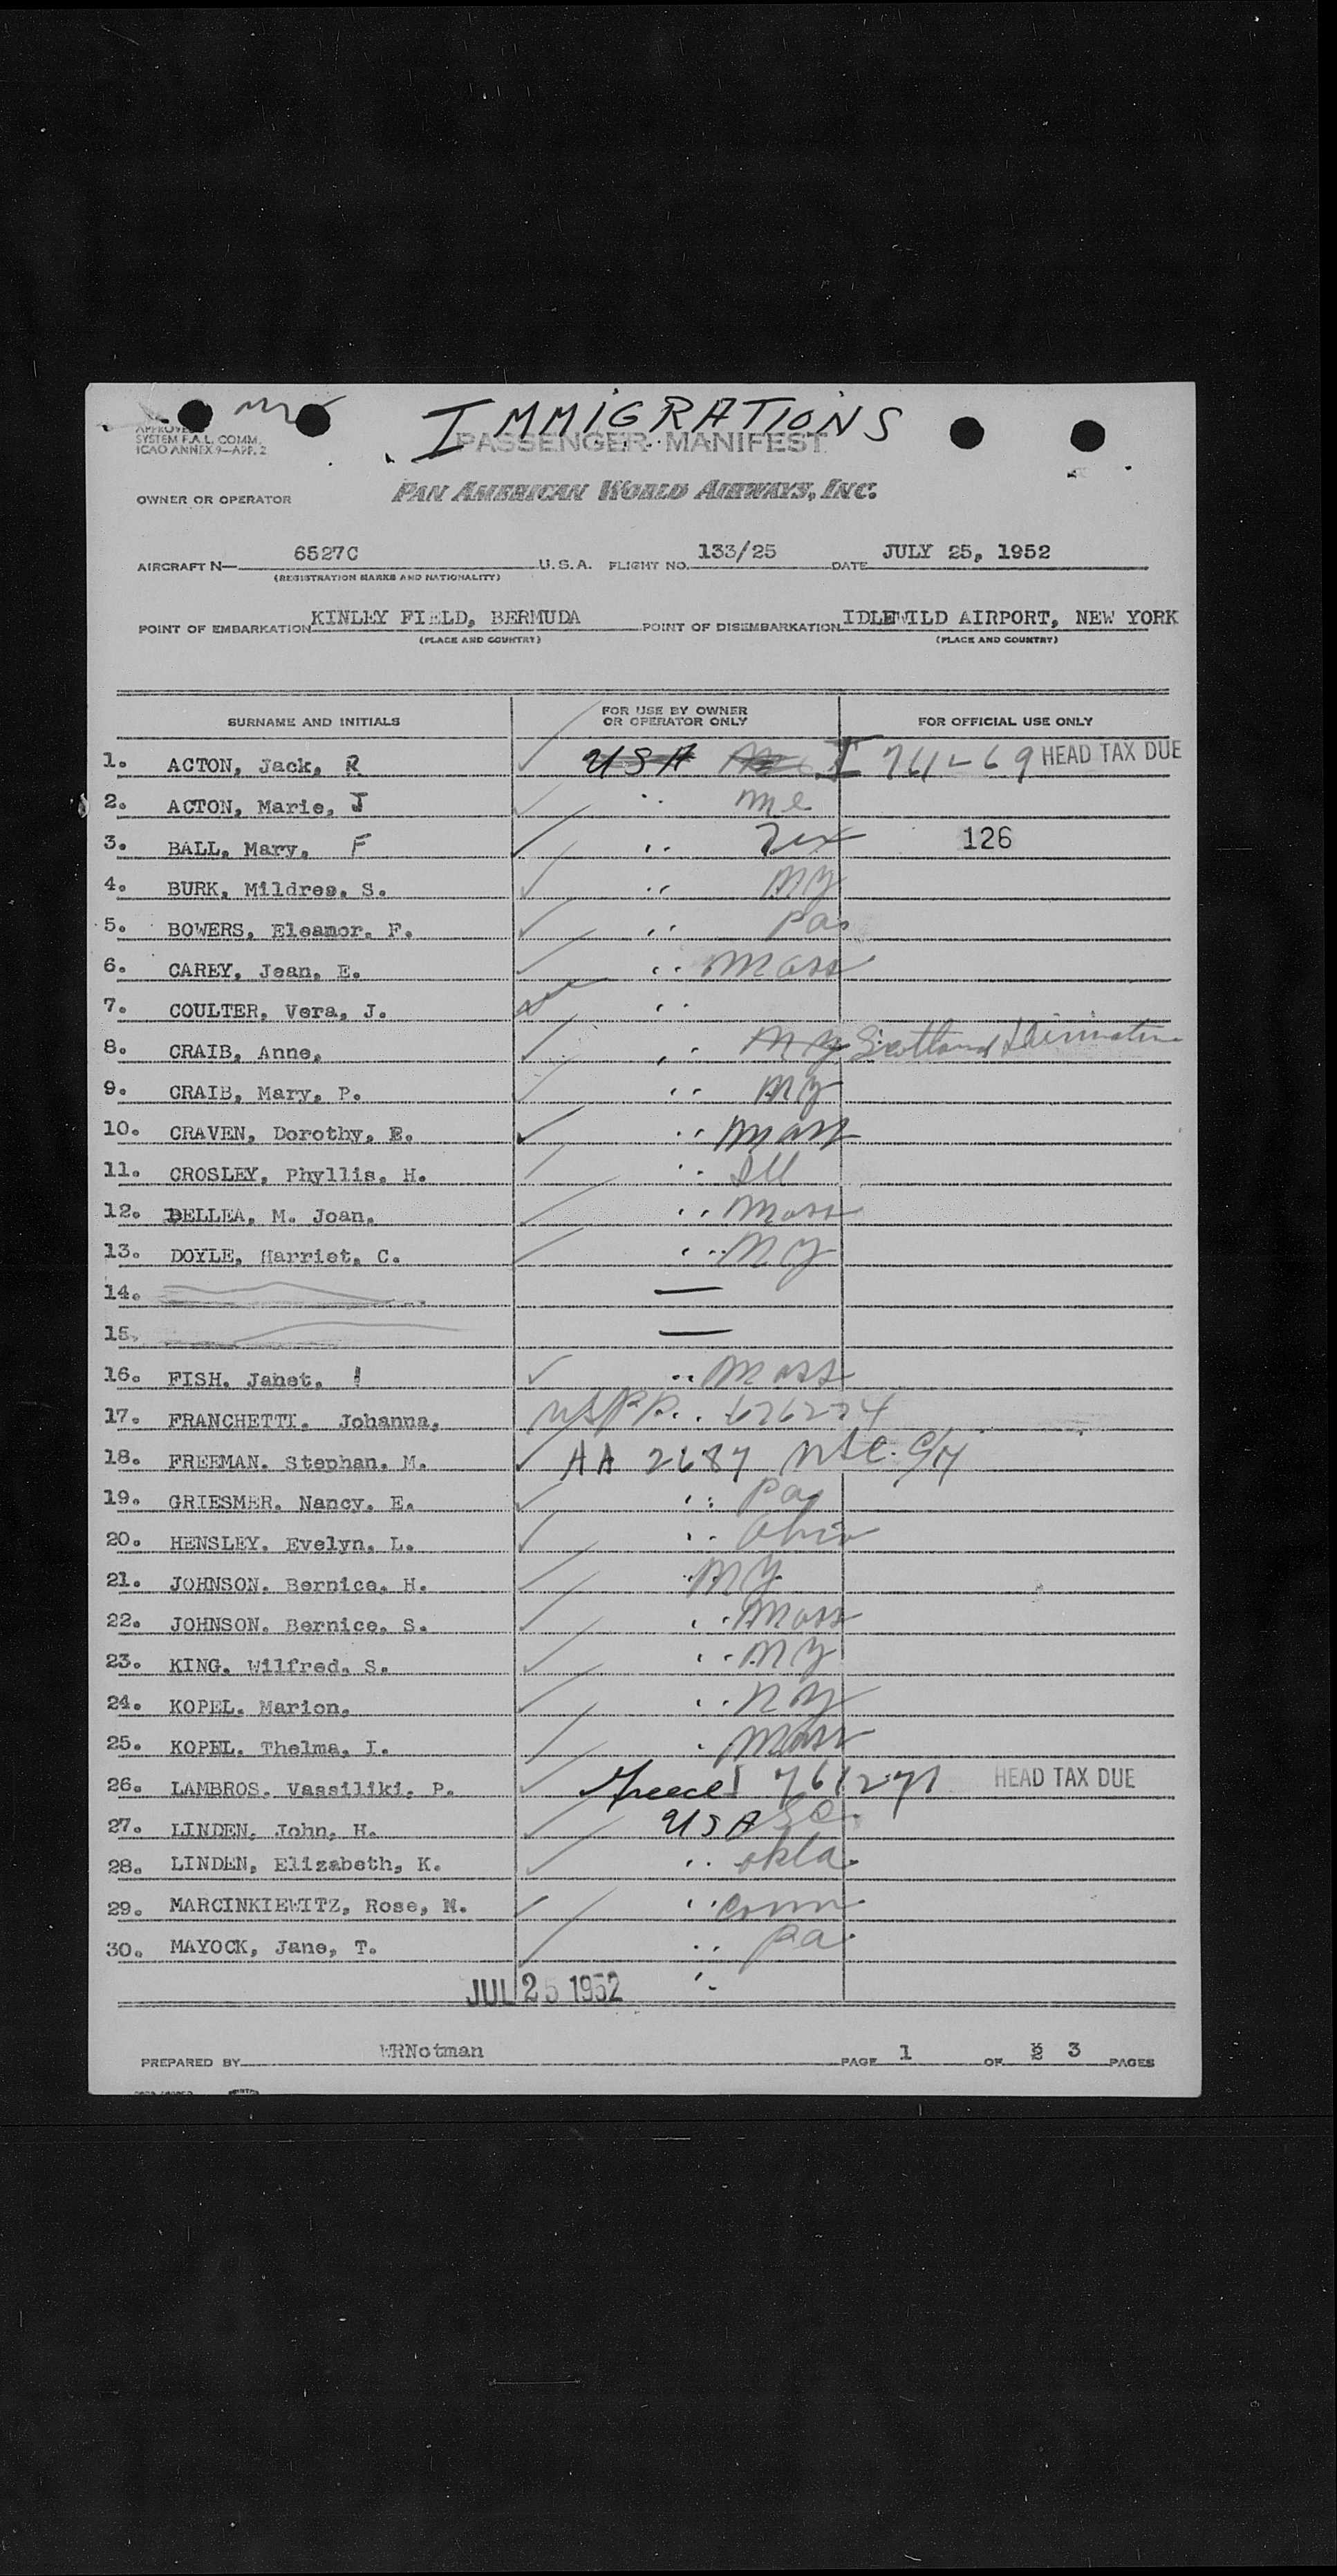 IMMIGRATIONS
SYSTEM F.A.L. COMM.
ICAO ANNEX 9—APP. 2
PASSENGER MANIFEST
OWNER OR OPERATOR PAN AMERICAN WORLD AIRWAYS, INC.
AIRCRAFT N— 6527C U.S.A. FLIGHT NO. 133/25 DATE JULY 25, 1952
(REGISTRATION MARKS AND NATIONALITY)
POINT OF EMBARKATION KINLEY FIELD, BERMUDA POINT OF DISEMBARKATION IDLEWILD AIRPORT, NEW YORK
(PLACE AND COUNTRY) (PLACE AND COUNTRY)
SURNAME AND INITIALS FOR USE BY OWNER OR OPERATOR ONLY FOR OFFICIAL USE ONLY
1. ACTON, Jack, R USA HEAD TAX DUE
2. ACTON, Marie, J " me
3. BALL, Mary, F " Tex 126
4. BURK, Mildres. S. " NY
5. BOWERS, Eleanor. F. " Pa
6. CAREY, Jean. E. " Mass
7. COULTER, Vera, J. "
8. CRAIB, Anne, " NY Scotland
9. CRAIB, Mary, P. " NY
10. CRAVEN, Dorothy, E. " Mass
11. CROSLEY, Phyllis, H. " Ill
12. DELLEA, M. Joan. " Mass
13. DOYLE, Harriet, C. " NY
14. —
15. —
16. FISH. Janet. " Mass
17. FRANCHETTI. Johanna, USPP 626224
18. FREEMAN. Stephan. M. AA 2687
19. GRIESMER. Nancy. E. " Pa
20. HENSLEY. Evelyn. L. " Ohio
21. JOHNSON. Bernice. H. " NY
22. JOHNSON. Bernice. S. " Mass
23. KING. Wilfred. S. " NY
24. KOPEL. Marion. " NY
25. KOPEL. Thelma. I. " Mass
26. LAMBROS. Vassiliki. P. Greece I 761271 HEAD TAX DUE
27. LINDEN, John, H. USA SC
28. LINDEN, Elizabeth, K. " Okla.
29. MARCINKIEWITZ, Rose, M. " Conn
30. MAYOCK, Jane, T. " Pa
JUL 25 1952 "
PREPARED BY WRNotman PAGE 1 OF 3 PAGES